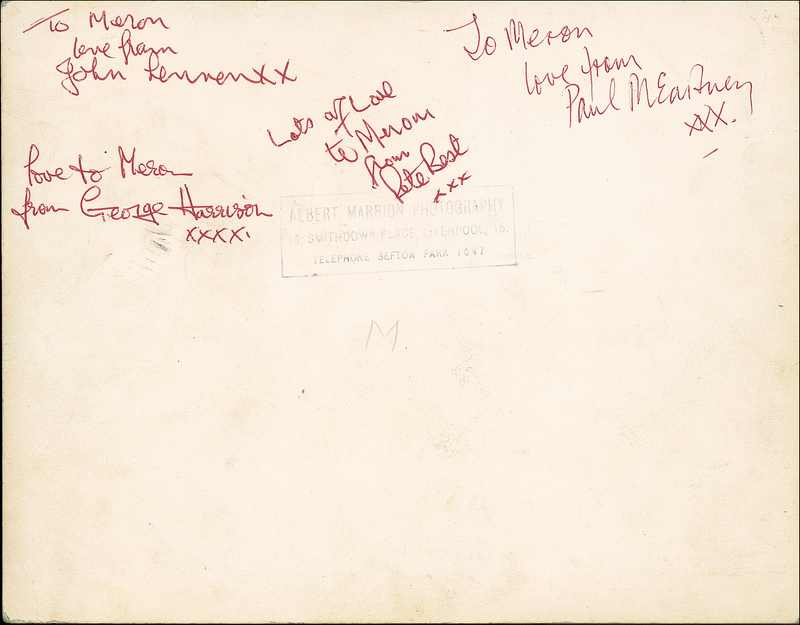 To Meron
love from
John Lennon XX
To Meron
love from
Paul McCartney
XXX.
Lots of Love
to Meron
from
Pete Best
xxx
love to Meron
from George Harrison
xxxx.
ALBERT MARRION PHOTOGRAPHY
19, SMITHDOWN PLACE, LIVERPOOL, 15.
TELEPHONE SEFTON PARK 1647
M.